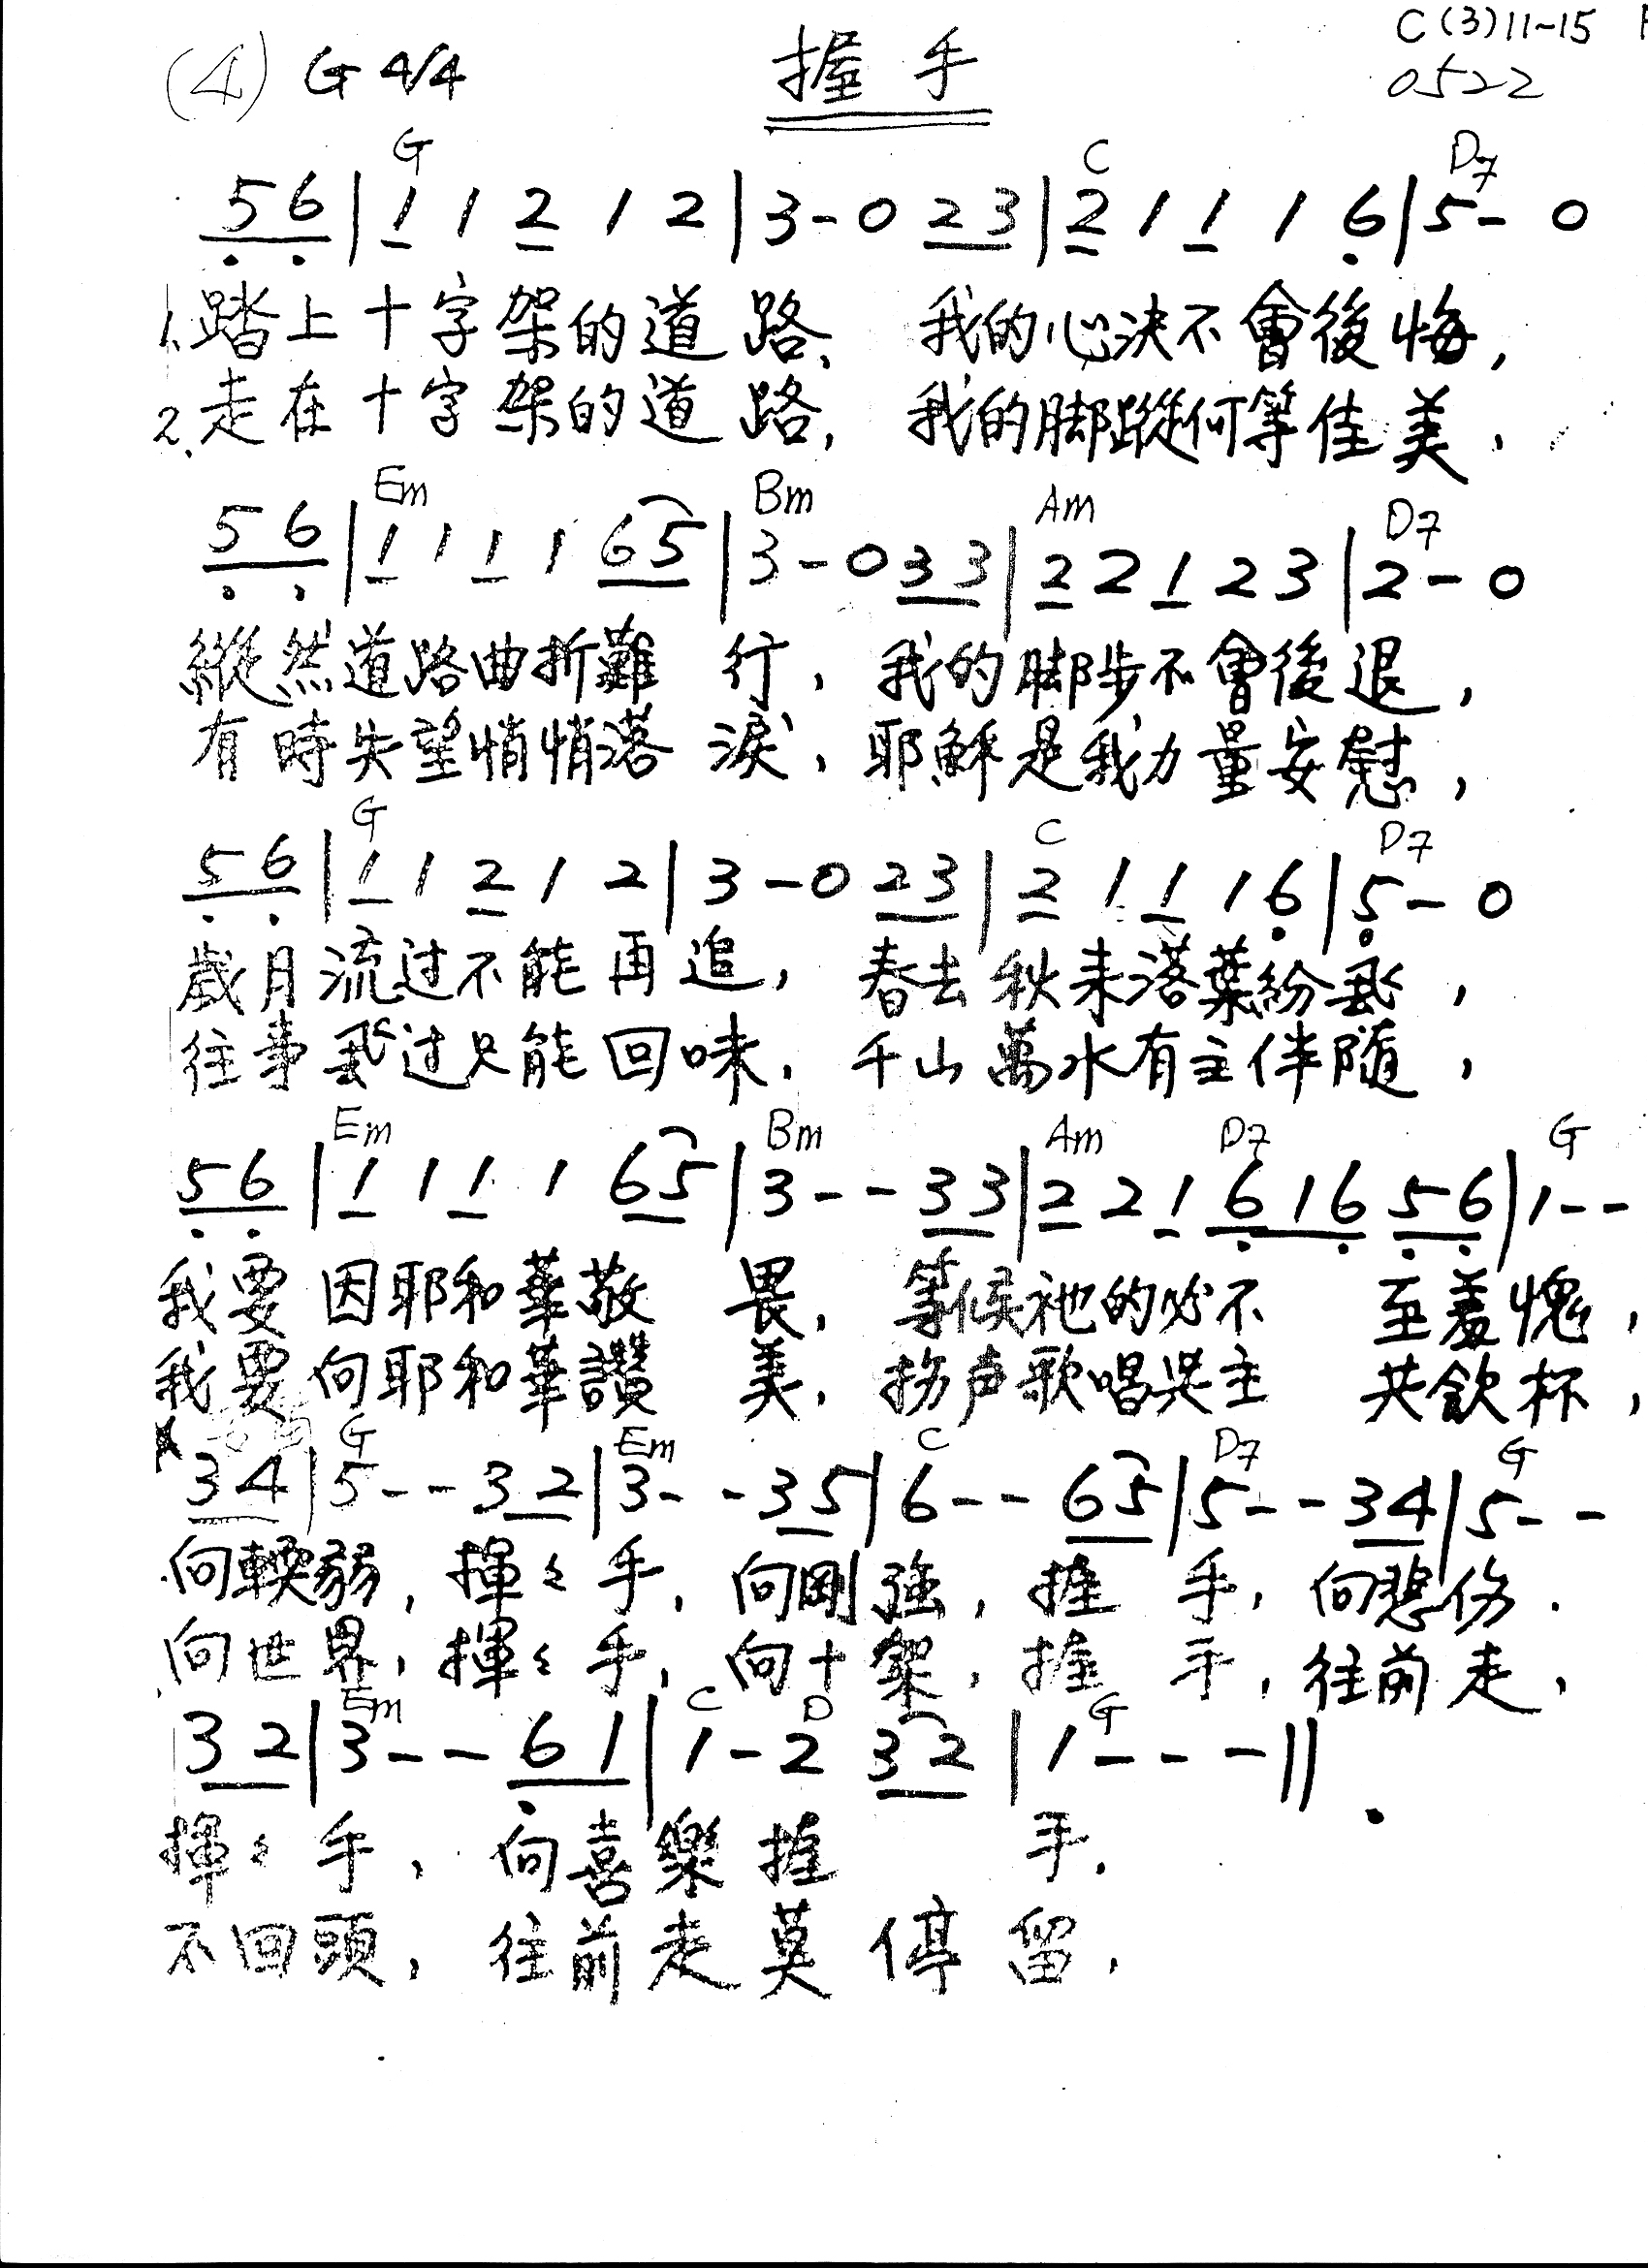 C(3)11-15
(4) G 4/4 握手 0522
G C D7
5 6 | 1 1 2 1 2 | 3 - 0 2 3 | 2 1 1 1 6 | 5 - 0
1. 踏上十字架的道路、我的心決不會後悔,
2. 走在十字架的道路, 我的脚蹤何等佳美,
Em Bm Am D7
5 6 | 1 1 1 1 6 5 | 3 - 0 3 3 | 2 2 1 2 3 | 2 - 0
縱然道路曲折難行, 我的脚步不會後退,
有時失望悄悄落淚, 耶穌是我力量安慰,
G C D7
5 6 | 1 1 2 1 2 | 3 - 0 2 3 | 2 1 1 1 6 | 5 - 0
歲月流过不能再追, 春去秋来落葉紛飛,
往事飛过只能回味, 千山萬水有主伴隨,
Em Bm Am D7 G
5 6 | 1 1 1 1 6 5 | 3 - - 3 3 | 2 2 1 6 1 6 5 6 | 1 - -
我要因耶和華敬畏, 等候祂的必不至羞愧,
我要向耶和華讚美, 扬声歌唱与主共飲杯,
G Em C D7 G
3 4 | 5 - - 3 2 | 3 - - 3 5 | 6 - - 6 5 | 5 - - 3 4 | 5 - -
向軟弱, 揮々手, 向剛強, 握手, 向悲伤.
向世界, 揮々手, 向十架, 握手, 往前走,
Em C D G
3 2 | 3 - - 6 1 | 1 - 2 3 2 | 1 - - - ||
揮々手, 向喜樂握手.
不回頭, 往前走莫停留.